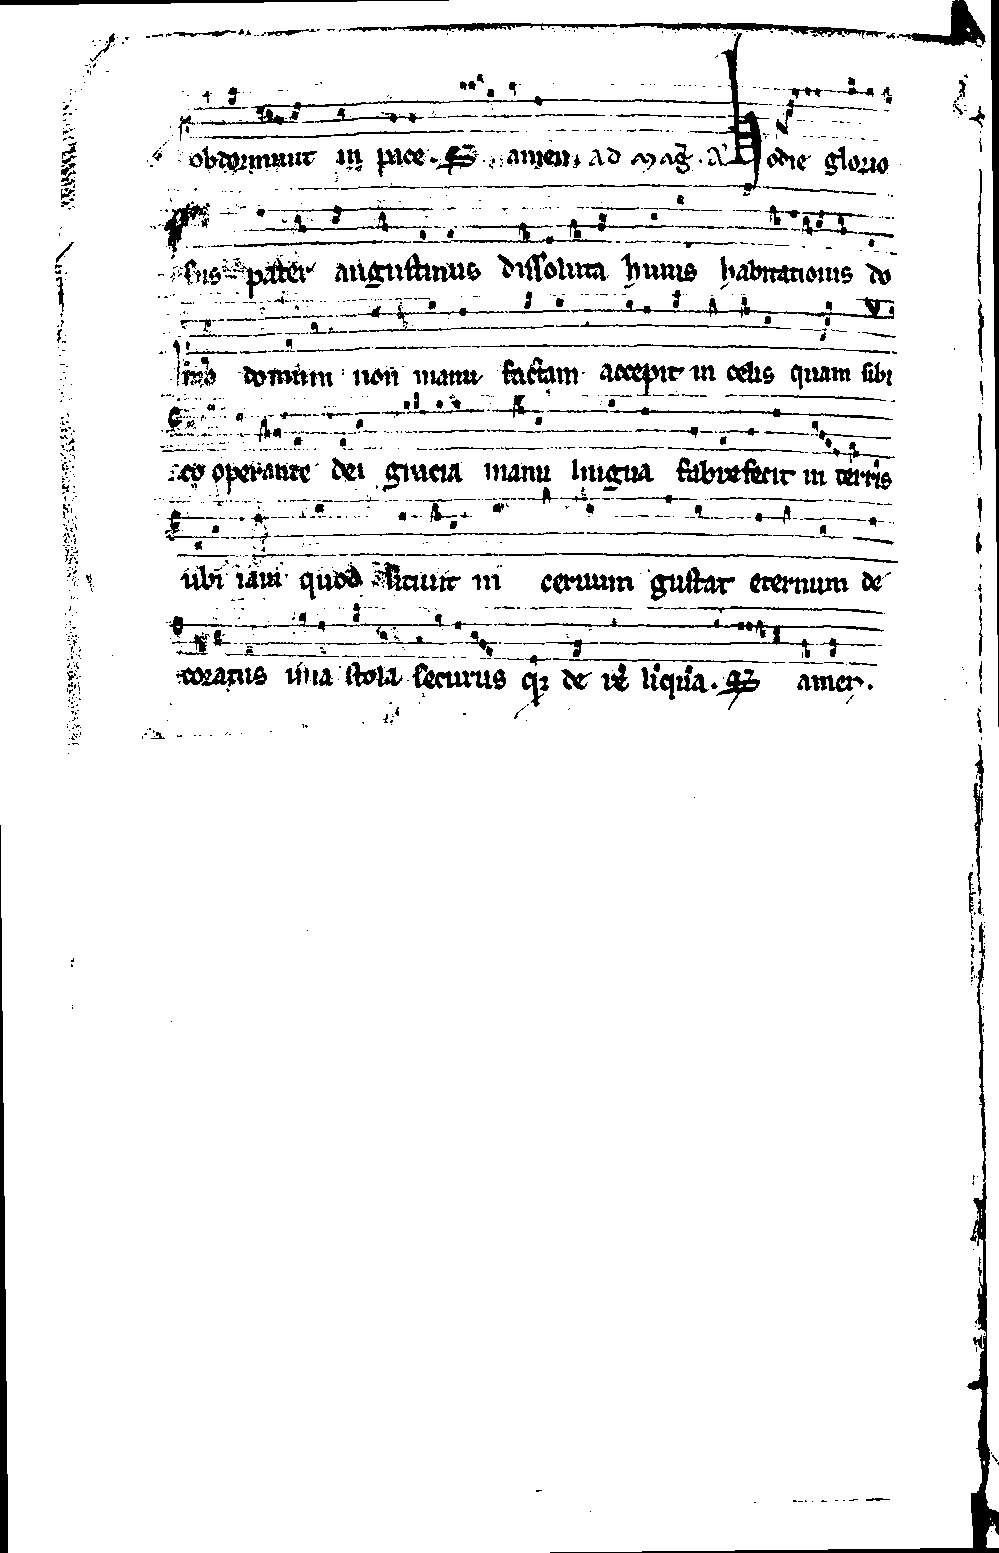 obdormiuit in pace. amen. ad mag. A Hodie glorio
sus pater augustinus dissoluta huius habitationis do
mo domum non manu factam accepit in celis quam sibi
co operante dei gracia manu lingua fabrefecit in terris
ubi iam quod sitiuit in ternum gustat eternum de
coratus una stola securus qz de reliqua. amen.